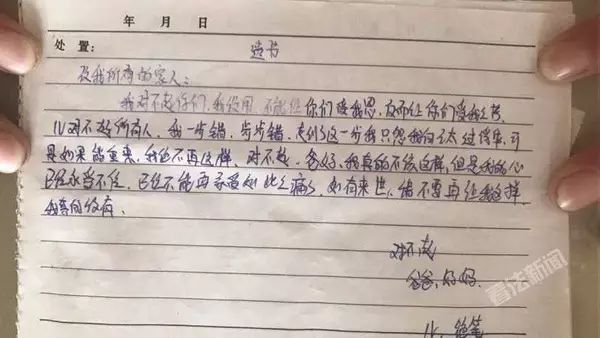 年 月 日
处置： 遗书
我所有的家人：
我对不起你们，我没用，不能给你们报恩，反而让你们受我之苦，
儿对不起所有人，我一步错，步步错，走到了这一步我只怨我自太过，可
是如果能重来，我绝不再这样，对不起，爸妈，我真的不该这样，但是我的心
已经承当不住，已经不能再承受如此之痛了，如有来生，绝不要再让我这样
我
对不起
爸爸，妈妈.
儿：绝笔
看法新闻